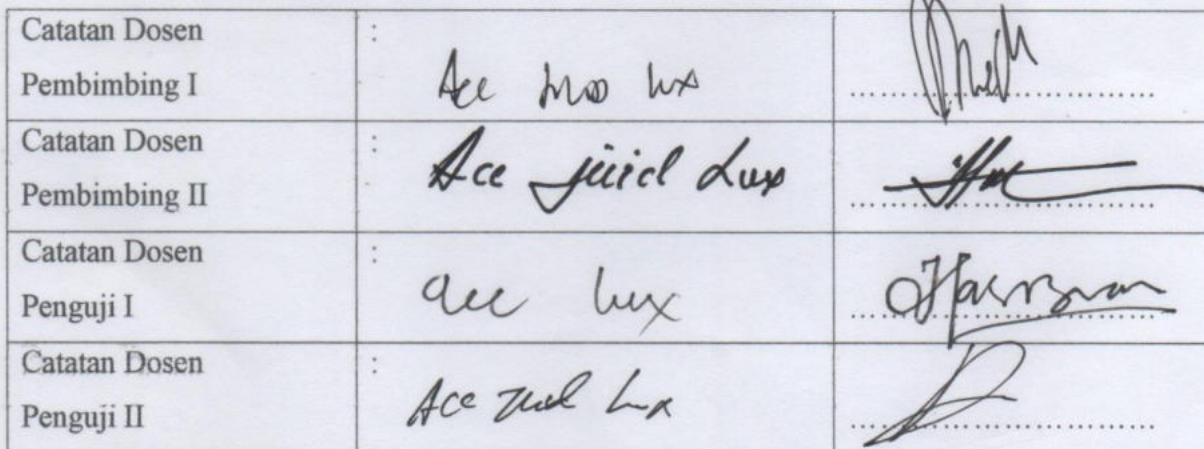 Catatan Dosen
Pembimbing I
:
Acc lux
Catatan Dosen
Pembimbing II
:
Acc jilid Lux
Catatan Dosen
Penguji I
:
acc lux
Catatan Dosen
Penguji II
:
Acc lux